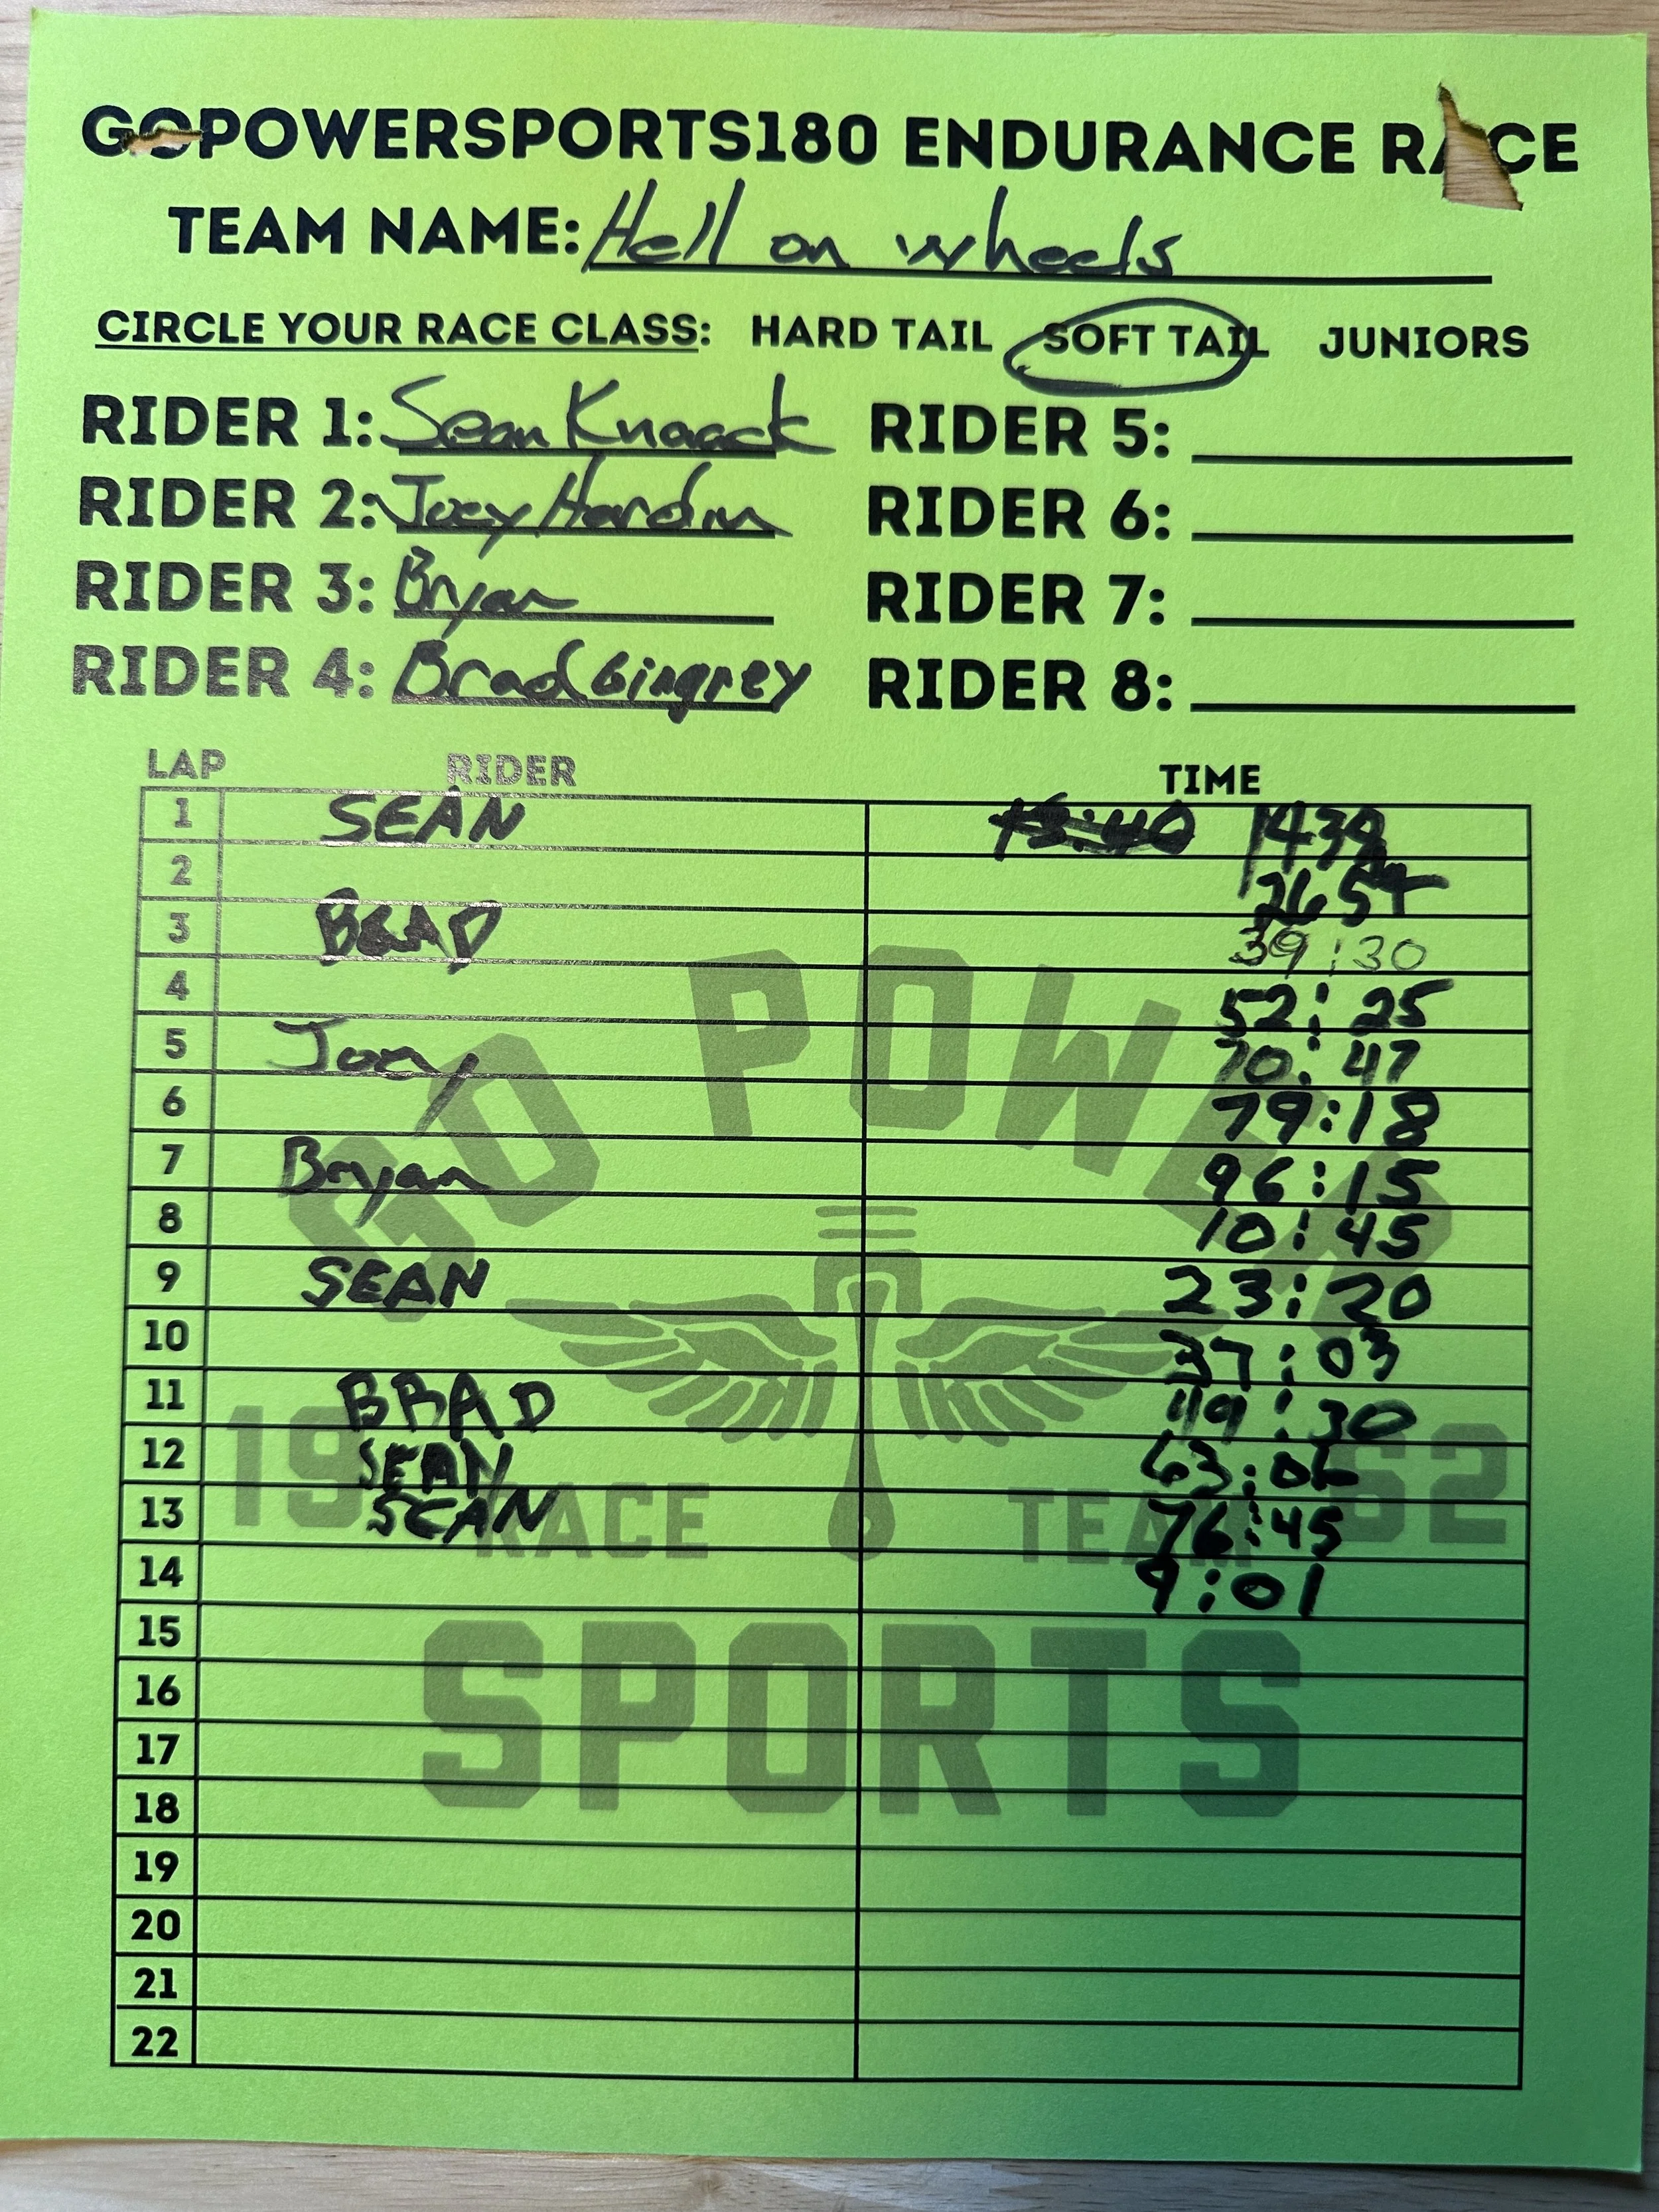 GOPOWERSPORTS180 ENDURANCE RACE
TEAM NAME: Hell on wheels
CIRCLE YOUR RACE CLASS: HARD TAIL SOFT TAIL JUNIORS
RIDER 1: Sean Knaack RIDER 5:
RIDER 2: Joey Hardin RIDER 6:
RIDER 3: Bryan RIDER 7:
RIDER 4: Brad Gingrey RIDER 8:
LAP RIDER TIME
1 SEAN
2
3 BRAD 39:30
4 52:25
5 Joey 70:47
6 79:18
7 Bryan 96:15
8 10:45
9 SEAN 23:20
10 37:03
11 BRAD 49:30
12 SEAN 63:06
13 SEAN 76:45
14 9:01
15
16
17
18
19
20
21
22
GO POWER
1962
RACE TEAM
SPORTS